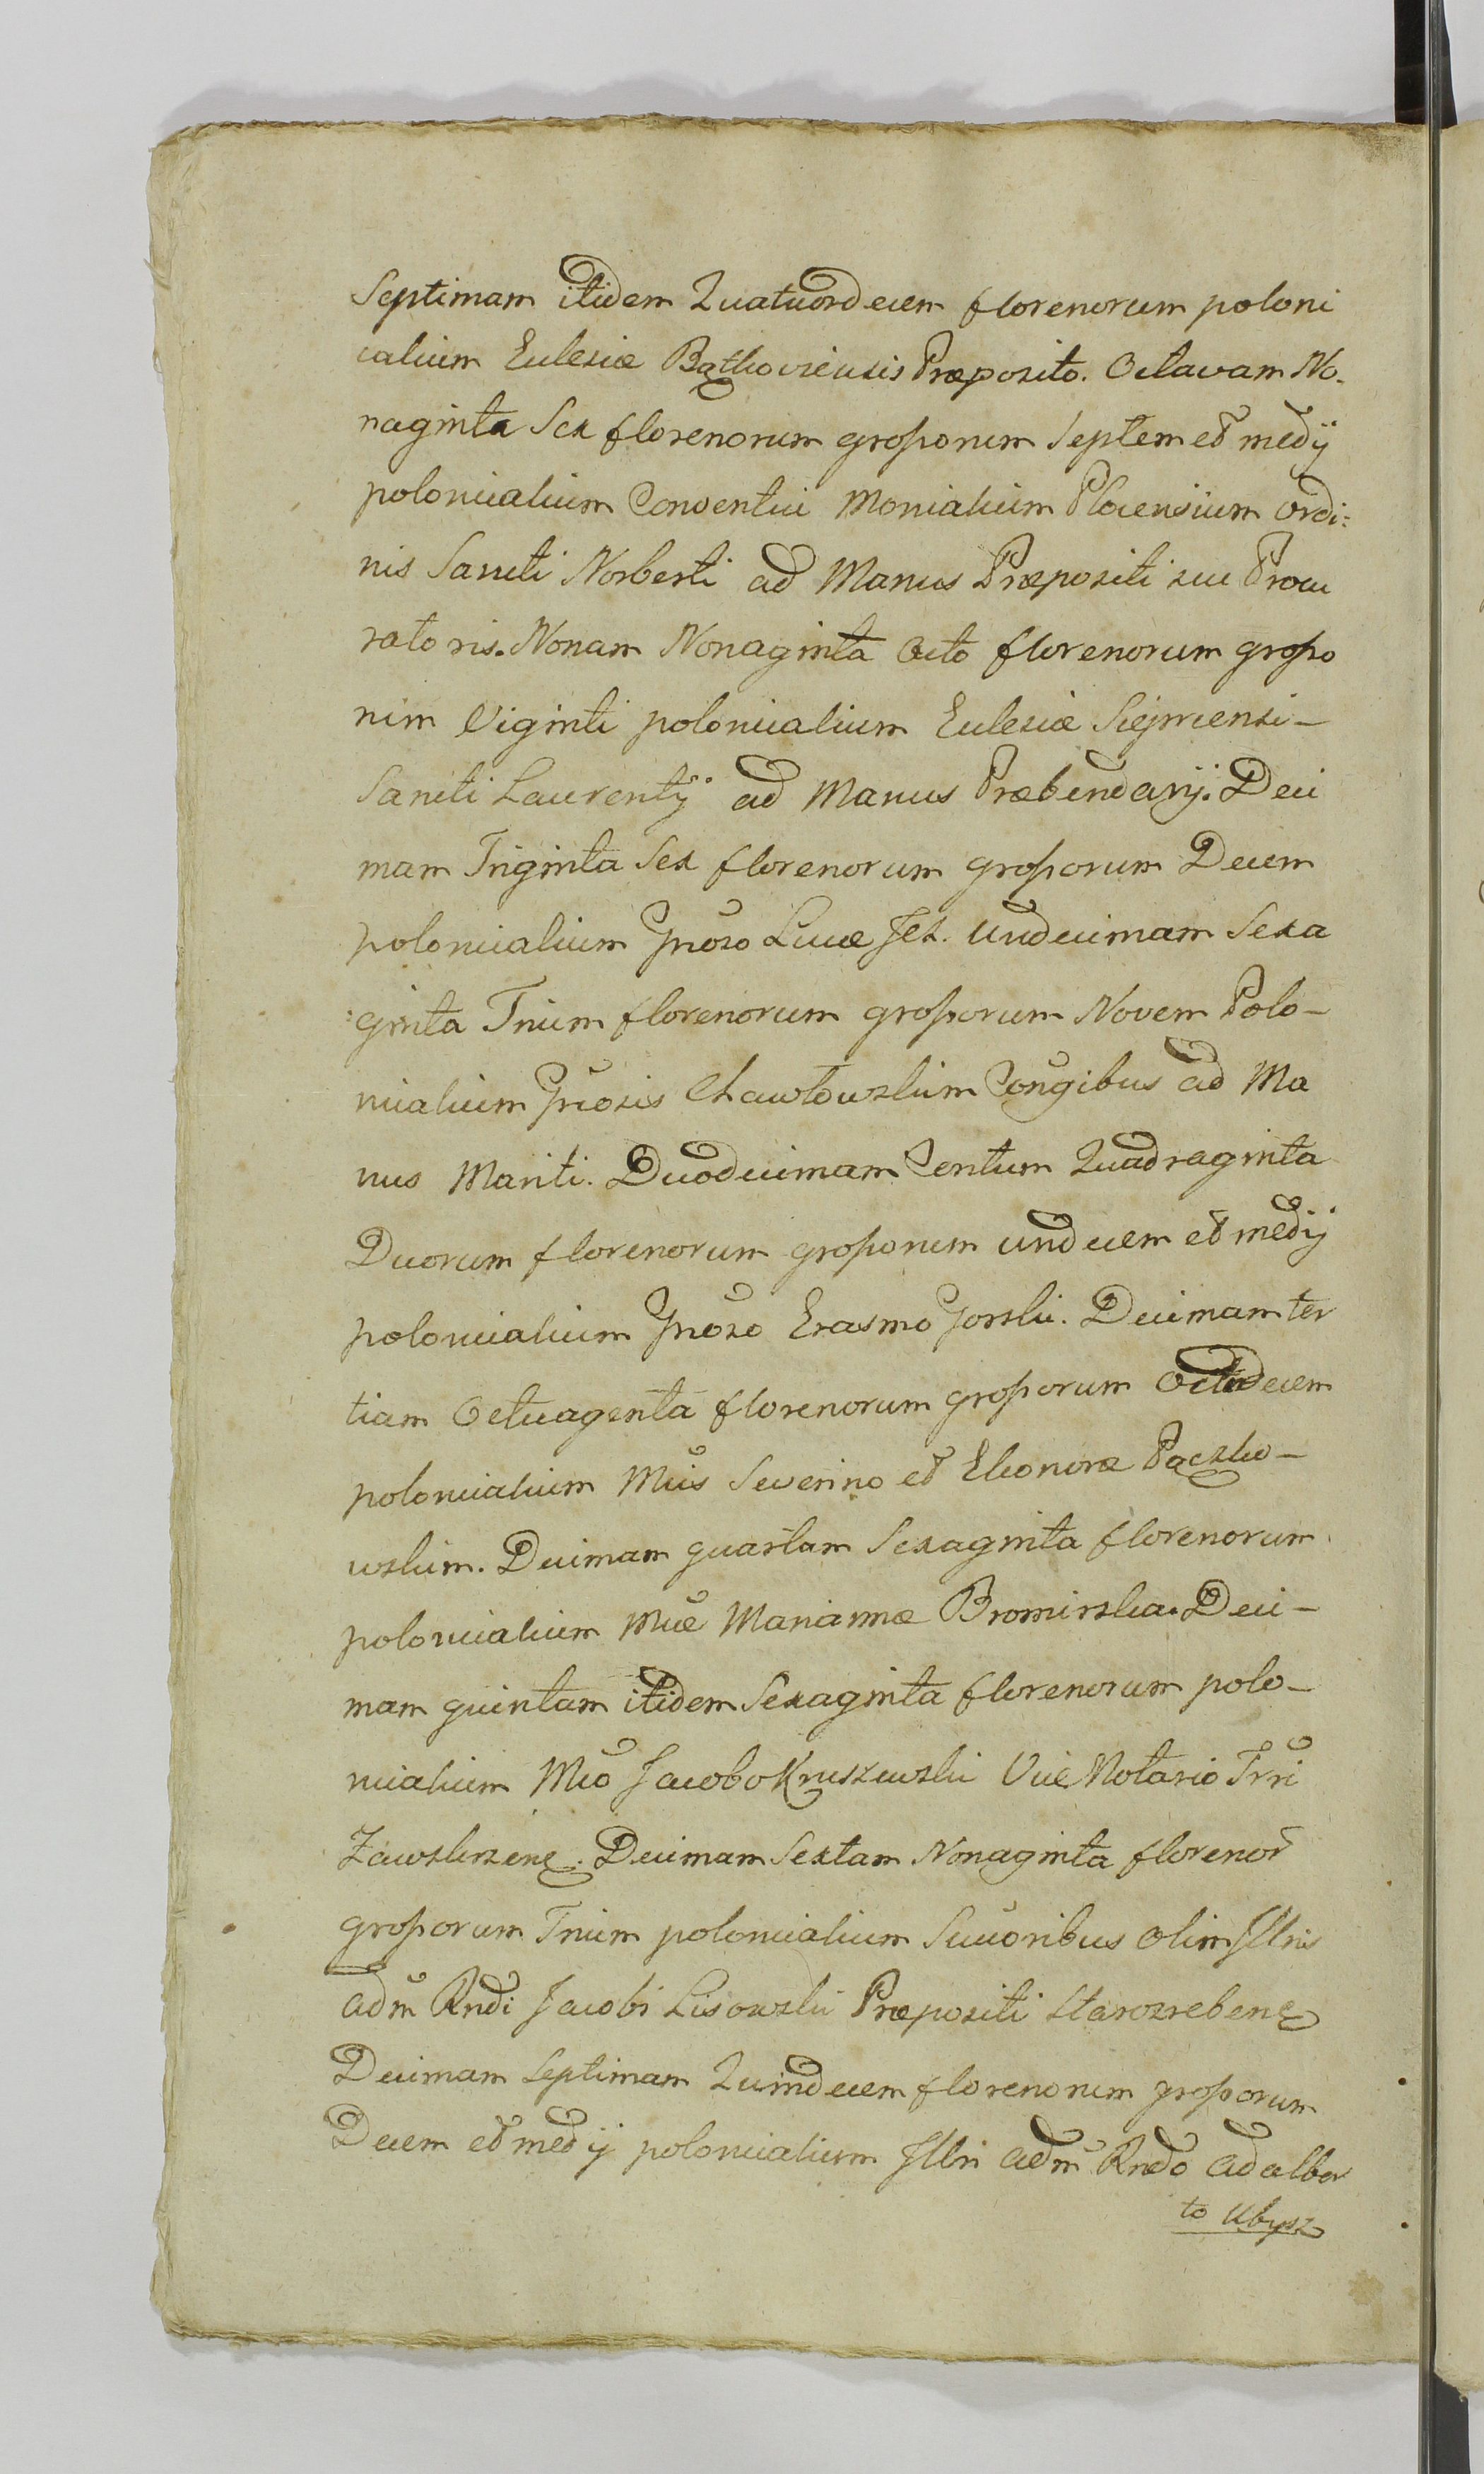 Septimam itidem Quatuordecem florenorum poloni
calium Ecclesiæ Bątkoviensis Præposito. Octavam No-
naginta Sex florenorum grossorum Septem et medij
polonicalium Conventui Monialium Plocensium Ordi=
nis Sancti Norberti ad Manus Præpositi seu Procu
ratoris. Nonam Nonaginta Octo florenorum grosso
rum Viginti polonicalium Ecclesiæ Siepricensi –
Sancti Laurentij ad Manus Præbendarij. Deci
mam Triginta Sex florenorum grossorum Decem
polonicalium Gnõso Lucæ Jeż. Undecimam Sexa
:ginta Trium florenorum grossorum Novem Polo-
nicalium Gnõsis Chawłowskim Conũgibus ad Ma
nus Mariti. Duodecimam Centum Quadraginta
Duorum florenorum grossorum undecem et medij
polonicalium Gnõso Erasmo Gorski. Decimam ter
tiam Octuagenta florenorum grossorum Octodecem
polonicalium Mcis Severino et Eleonoræ Pączko-
wskim. Decimam quartam Sexaginta florenorum
polonicalium Mcæ Mariannæ Bromirska. Deci-
mam quintam itidem Sexaginta florenorum polo-
nicalium Mco Jacobo Kruszewski Vice Notario Trri
Zawskrzenę. Decimam Sextam Nonaginta florenor
grossorum Trium polonicalium Succoribus olim Jllris
adm Rndi Jacobi Lisowski Præpositi Starozrebenę
Decimam Septimam Quindecem florenorum grossorum
Decem et medij polonicalium Jllri adm Rndo Adalber
to Ubysz